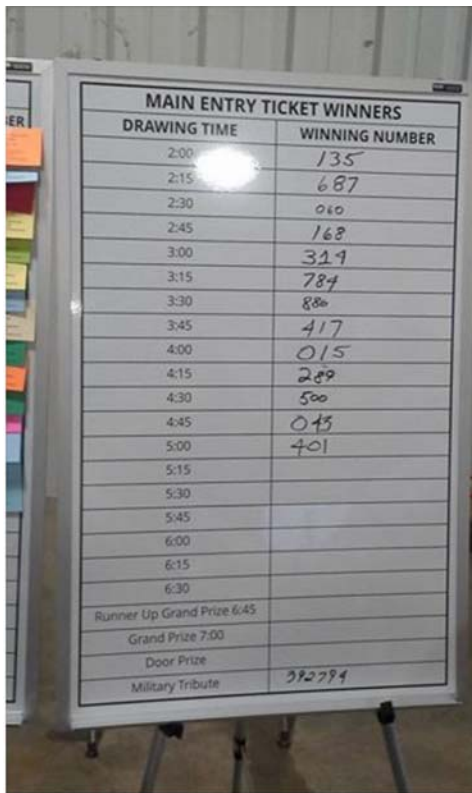 MAIN ENTRY TICKET WINNERS
DRAWING TIME WINNING NUMBER
2:00 135
2:15 687
2:30 060
2:45 168
3:00 319
3:15 784
3:30 880
3:45 417
4:00 015
4:15 289
4:30 500
4:45 043
5:00 401
5:15
5:30
5:45
6:00
6:15
6:30
Runner Up Grand Prize 6:45
Grand Prize 7:00
Door Prize
Military Tribute 392794